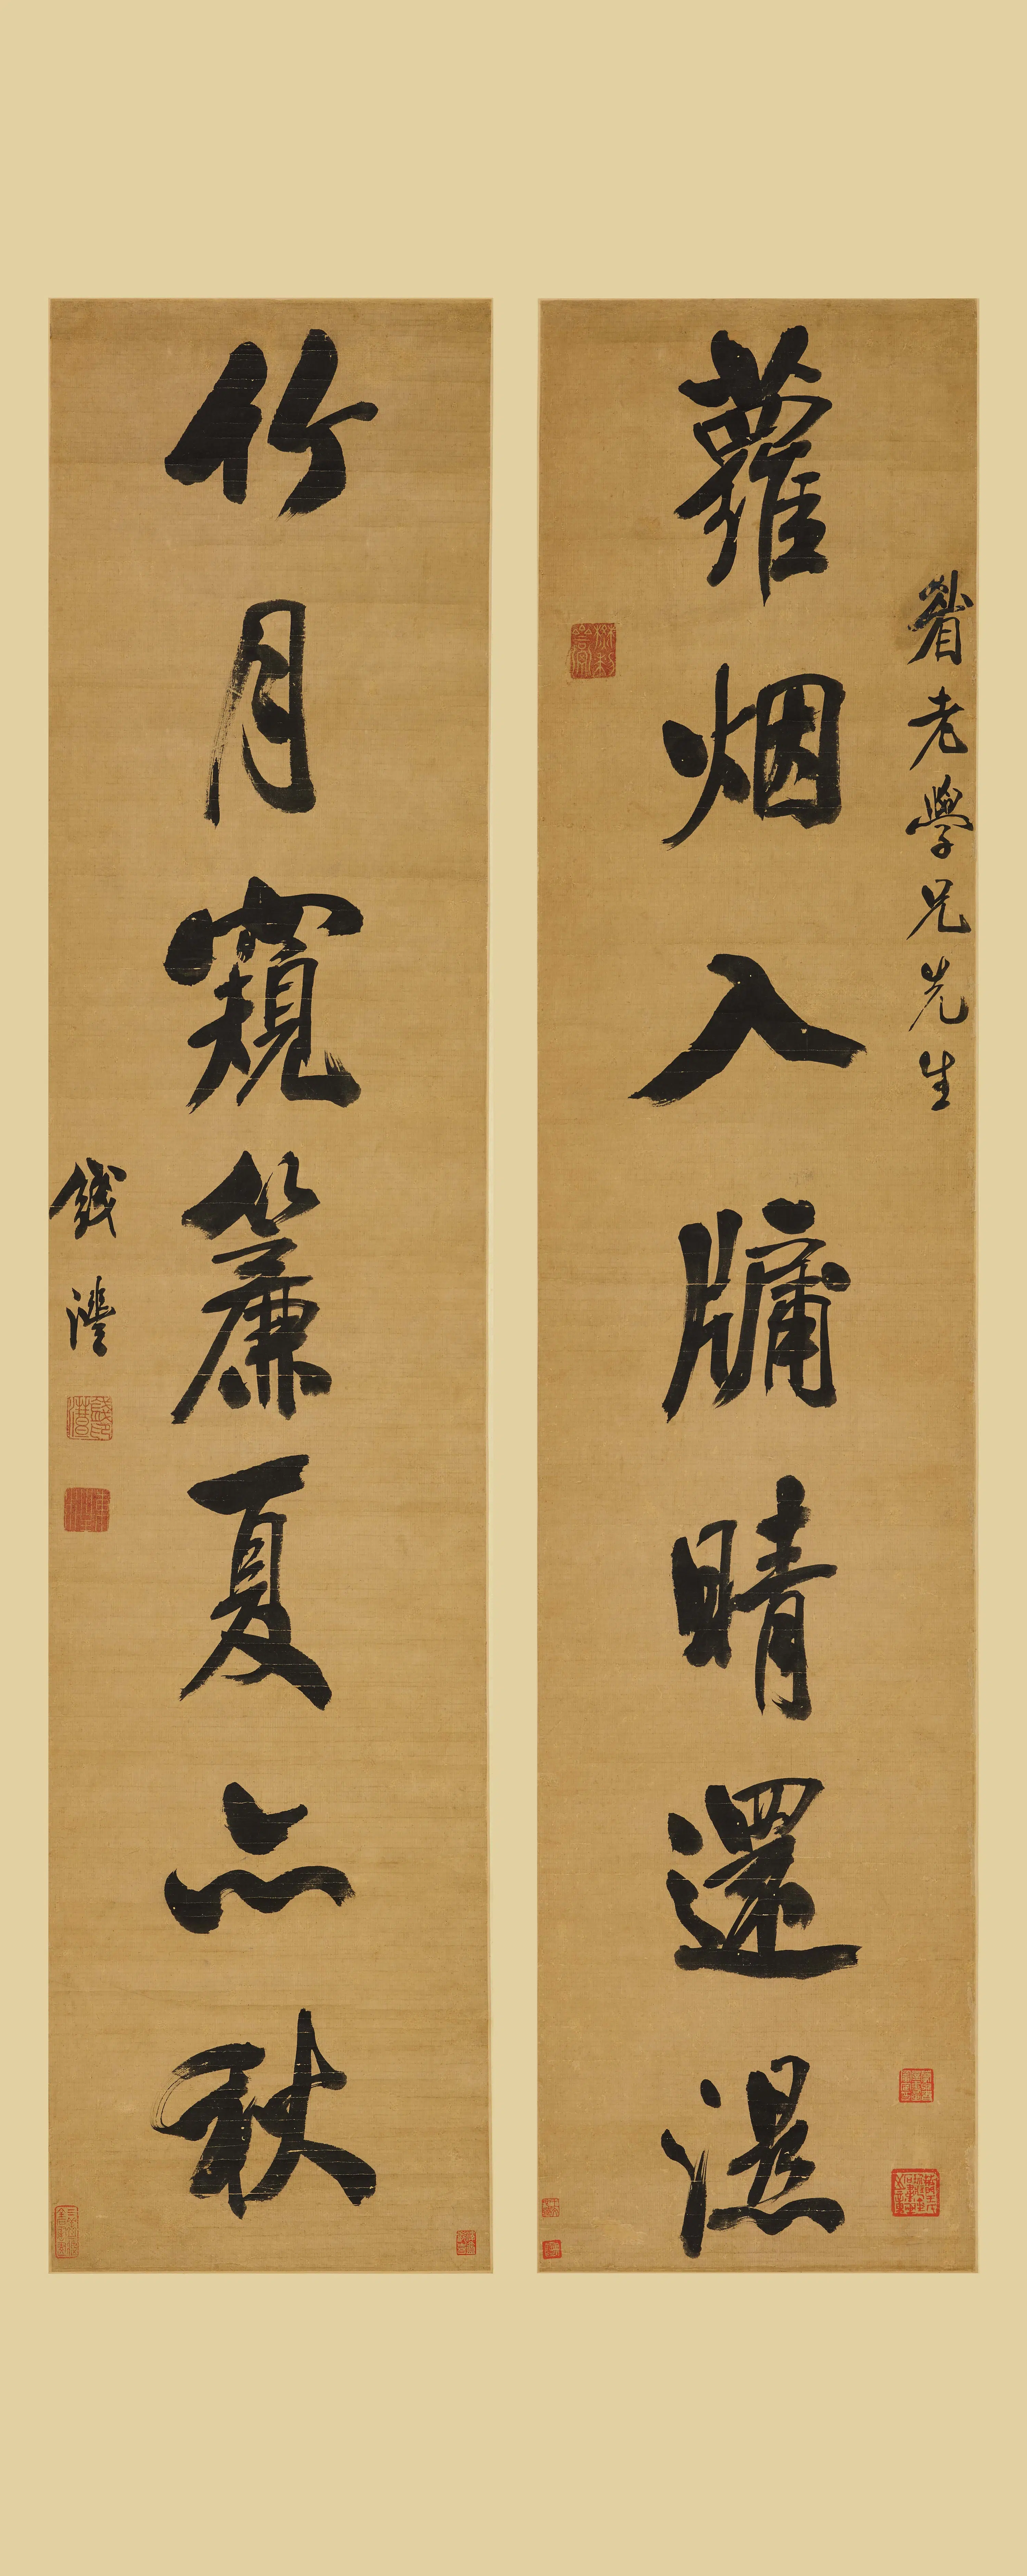 萝老學兄先生
蘿烟入牖晴還濕
竹月窺簾夏亦秋
錢灃